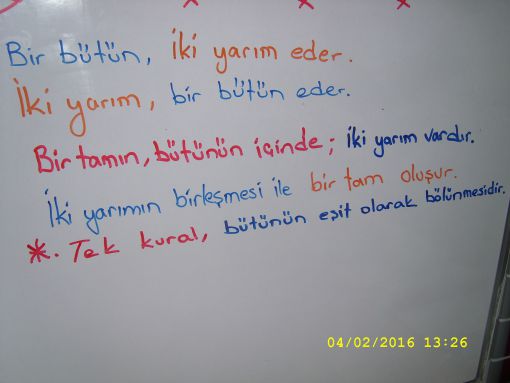 Bir bütün, iki yarım eder.
İki yarım, bir bütün eder.
Bir tamın, bütünün içinde; iki yarım vardır.
İki yarımın birleşmesi ile bir tam oluşur.
*. Tek kural, bütünün eşit olarak bölünmesidir.
04/02/2016 13:26